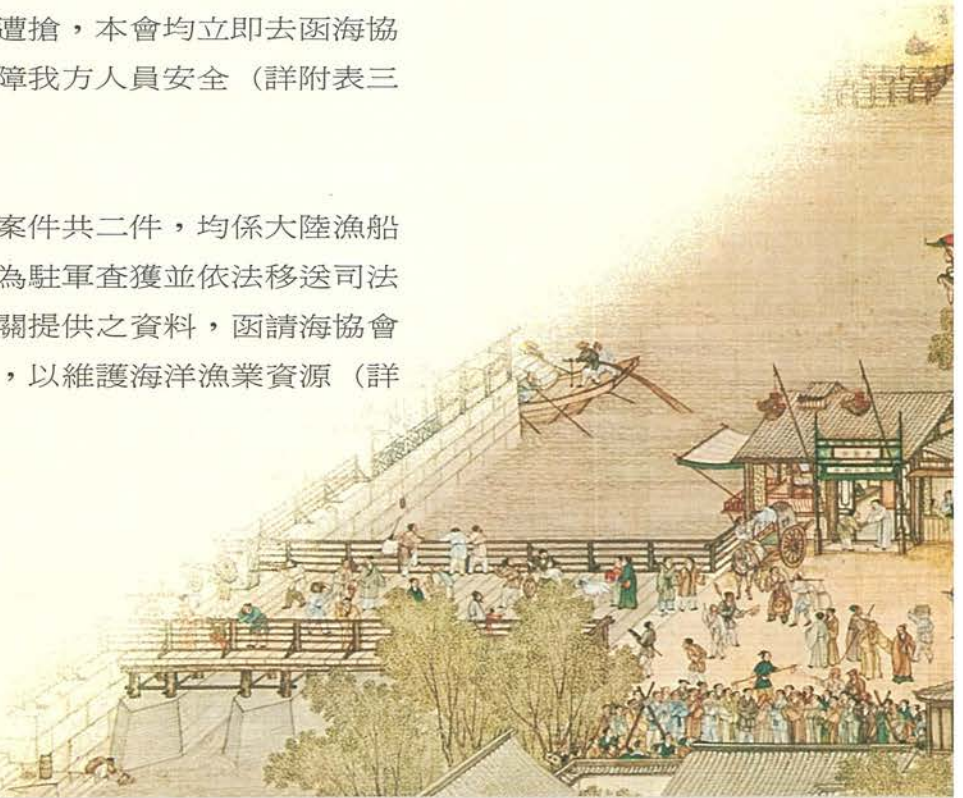 遭搶，本會均立即去函海協
障我方人員安全（詳附表三
案件共二件，均係大陸漁船
為駐軍查獲並依法移送司法
關提供之資料，函請海協會
，以維護海洋漁業資源（詳